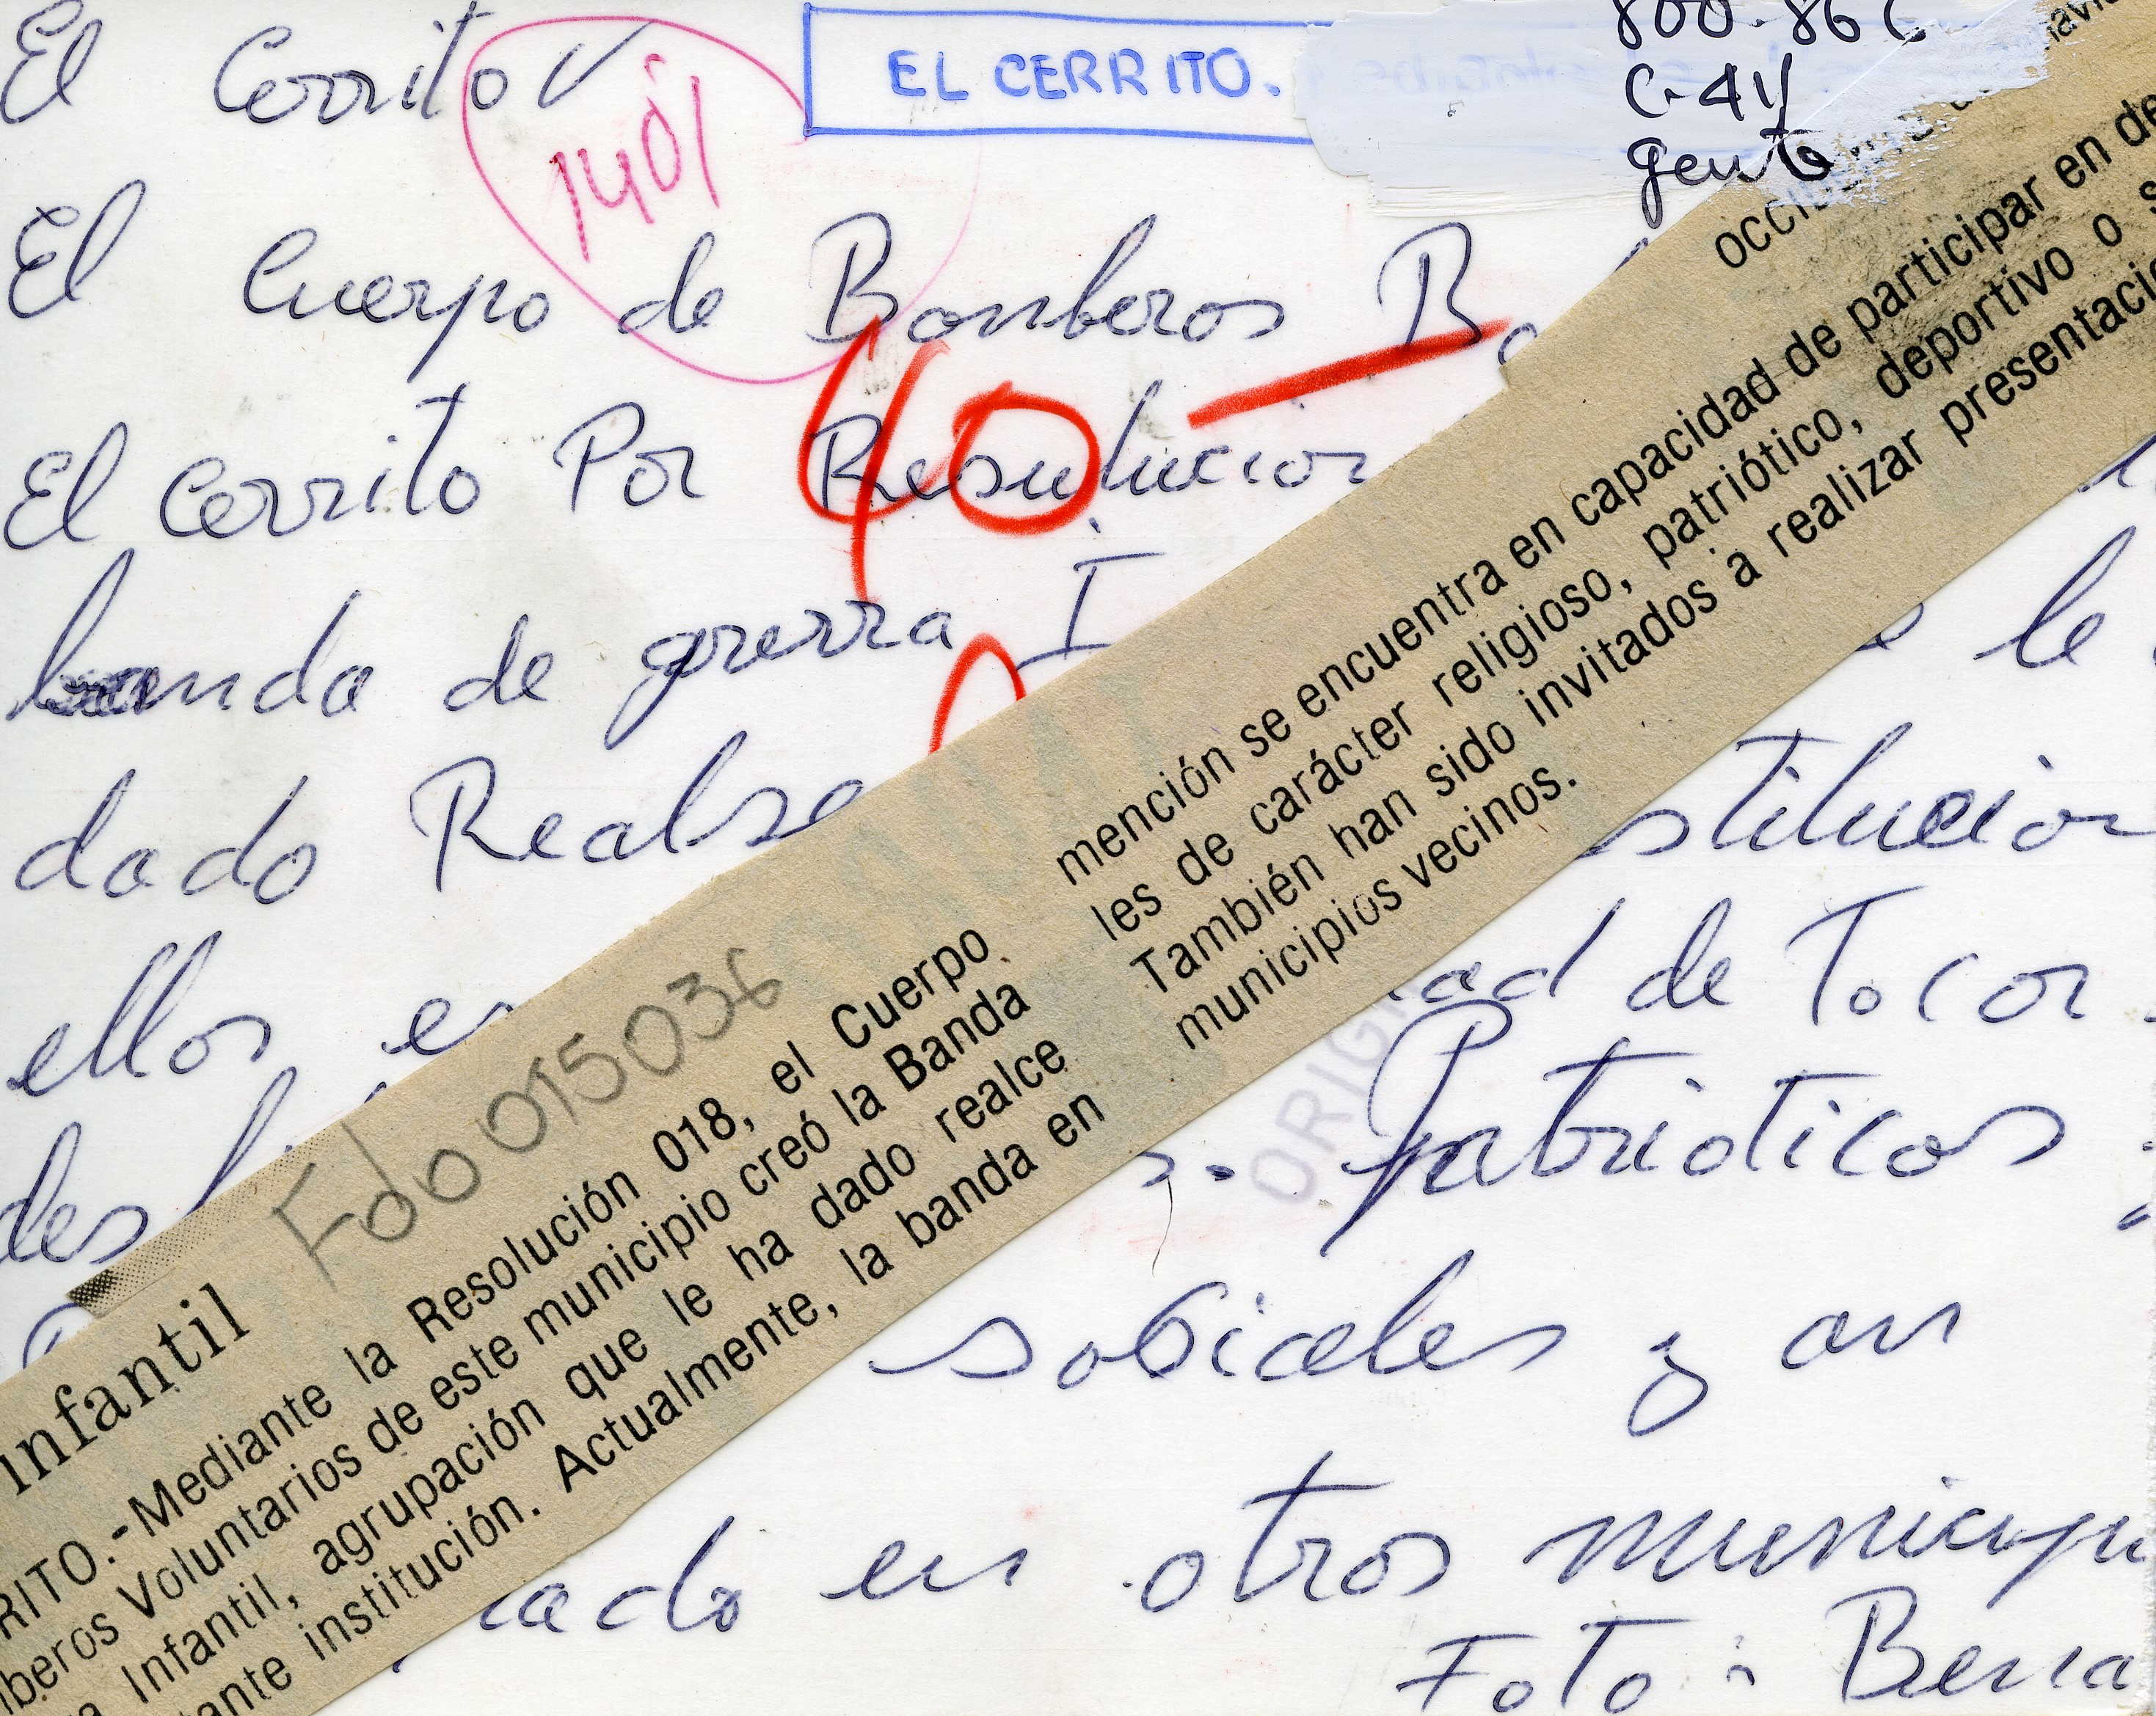 El Cerrito ✓
1401
EL CERRITO.
800-86 C
C-41
gente
El Cuerpo de Bomberos Bo
El Cerrito Por Resolucion
40
banda de guerra I
le
dado Realse
stitucion
ellos en
ad de Tocar
des
Patrioticos
ORIGI
sociales y an
cado en otros municipi
Foto: Berna
Fdo 015036
Infantil
RITO.- Mediante la Resolución 018, el Cuerpo
beros Voluntarios de este municipio creó la Banda
Infantil, agrupación que le ha dado realce
tante institución. Actualmente, la banda en
mención se encuentra en capacidad de participar en de
les de carácter religioso, patriótico, deportivo o s
También han sido invitados a realizar presentacio
municipios vecinos.